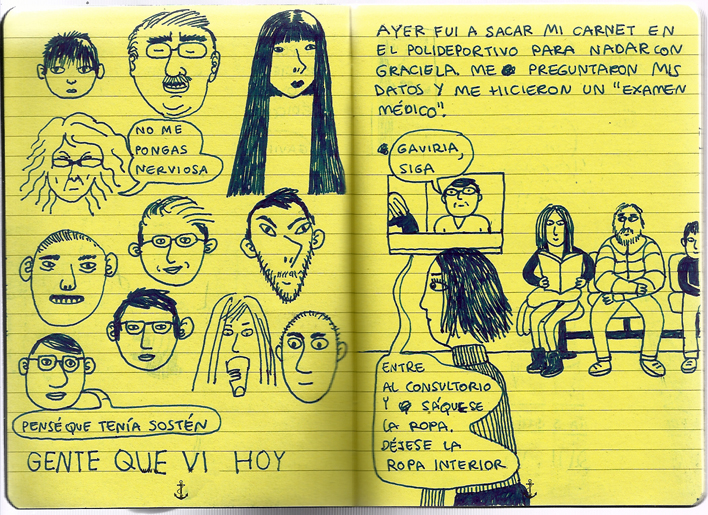 NO ME
PONGAS
NERVIOSA
PENSÉ QUE TENÍA SOSTÉN
GENTE QUE VI HOY
AYER FUI A SACAR MI CARNET EN
EL POLIDEPORTIVO PARA NADAR CON
GRACIELA. ME PREGUNTARON MIS
DATOS Y ME HICIERON UN "EXAMEN
MÉDICO".
GAVIRIA,
SIGA
ENTRE
AL CONSULTORIO
Y SÁQUESE
LA ROPA.
DÉJESE LA
ROPA INTERIOR